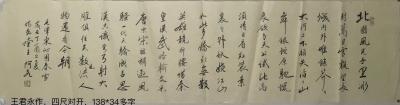 北国风光千里冰
封万里雪飘望长
城内外惟余莽莽
大河上下顿失滔
滔山舞银蛇原驰
蜡象欲与天公试比高
须晴日看红装素
裹分外妖娆江山
如此多娇引无数
英雄竞折腰惜秦
皇汉武略输文采
唐宗宋祖稍逊风
骚一代天骄成吉思
汗只识弯弓射大
雕俱往矣数风流人
物还看今朝
毛泽东沁园春雪
王君永作，四尺对开，138*34多字